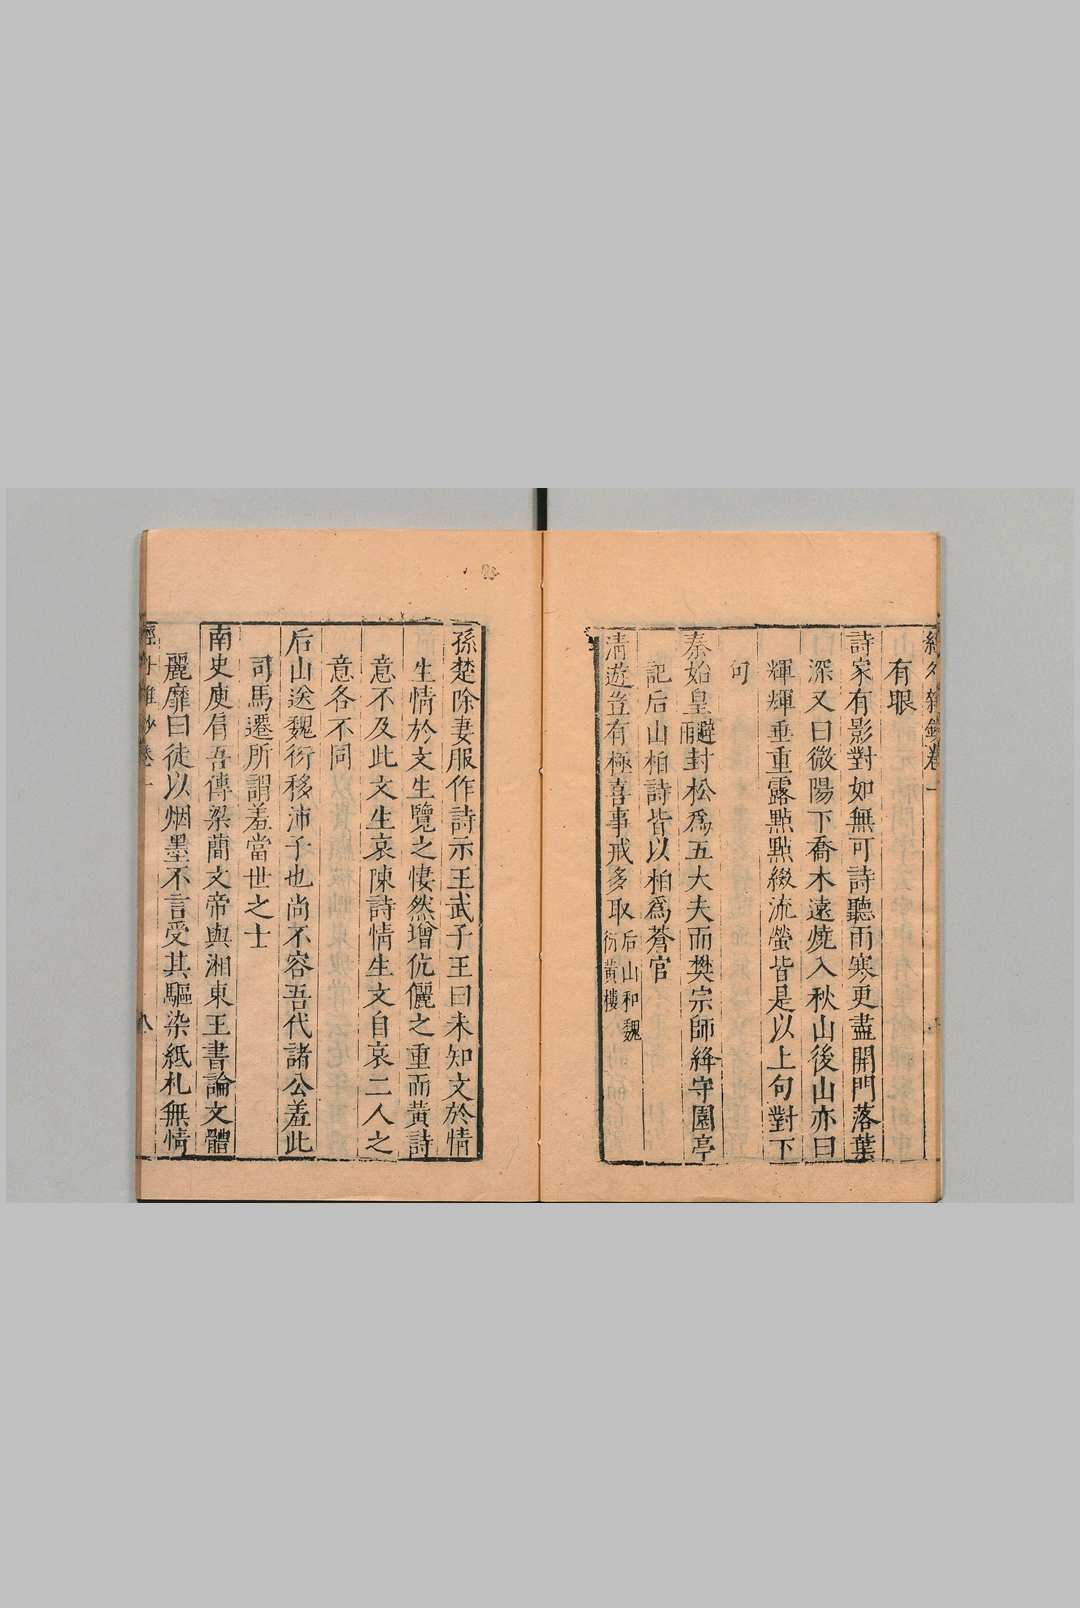 有眼
詩家有影對如無可詩聽雨寒更盡開門落葉
深又曰微陽下喬木遠燒入秋山後山亦曰
輝輝垂重露點點綴流螢皆是以上句對下
句
秦始皇避雨封松爲五大夫而樊宗師絳守園亭
記后山柏詩皆以柏爲蒼官
清遊豈有極喜事戒多取后山和魏衍黃樓
孫楚除妻服作詩示王武子王曰未知文於情
生情於文生覽之悽然增伉儷之重而黃詩
意不及此文生哀陳詩情生文自哀二人之
意各不同
后山送魏衍移沛子也尚不容吾代諸公羞此
司馬遷所謂羞當世之士
南史庾肩吾傳梁蕳文帝與湘東王書論文體
麗靡曰徒以烟墨不言受其驅染紙札無情